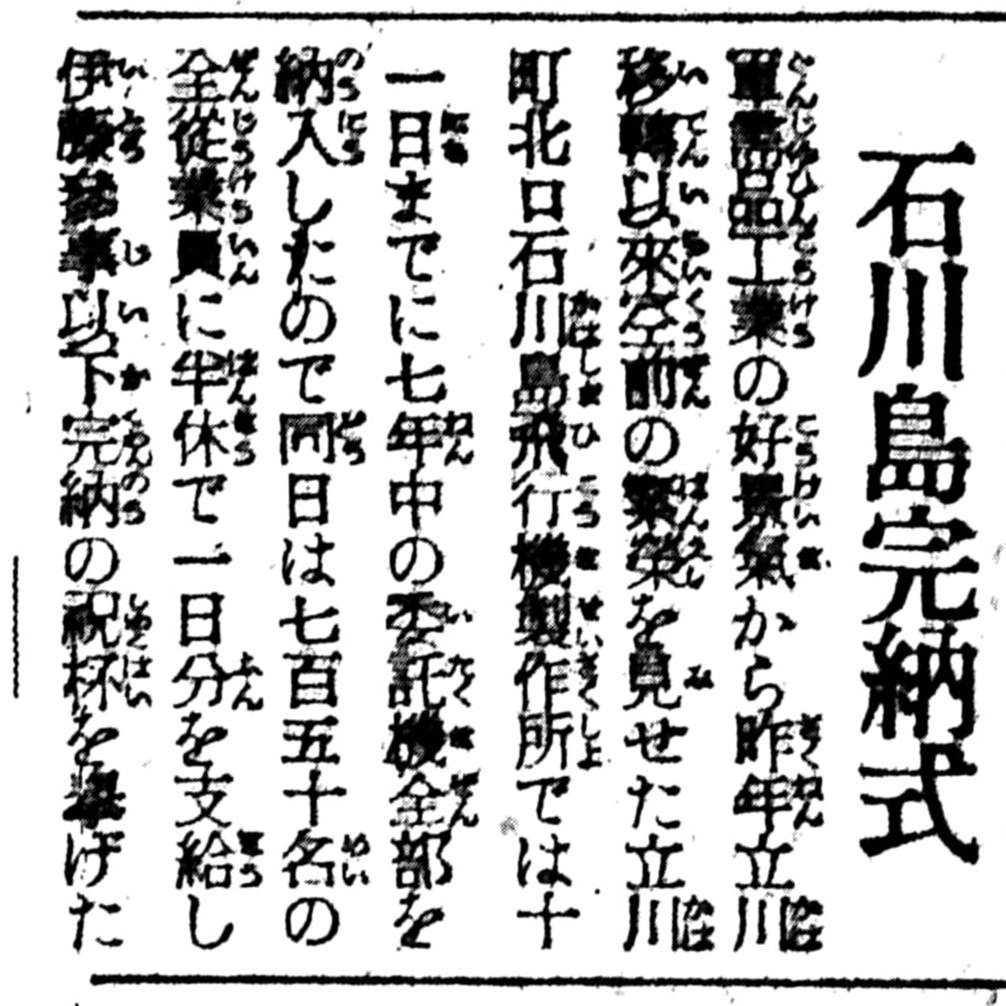 石川島完納式
軍需品工業の好景氣から昨年立川
移轉以來空前の繁榮を見せた立川
町北口石川島飛行機製作所では十
一日までに七年中の委託機全部を
納入したので同日は七百五十名の
全從業員に半休で一日分を支給し
伊藤參事以下完納の祝杯を擧げた